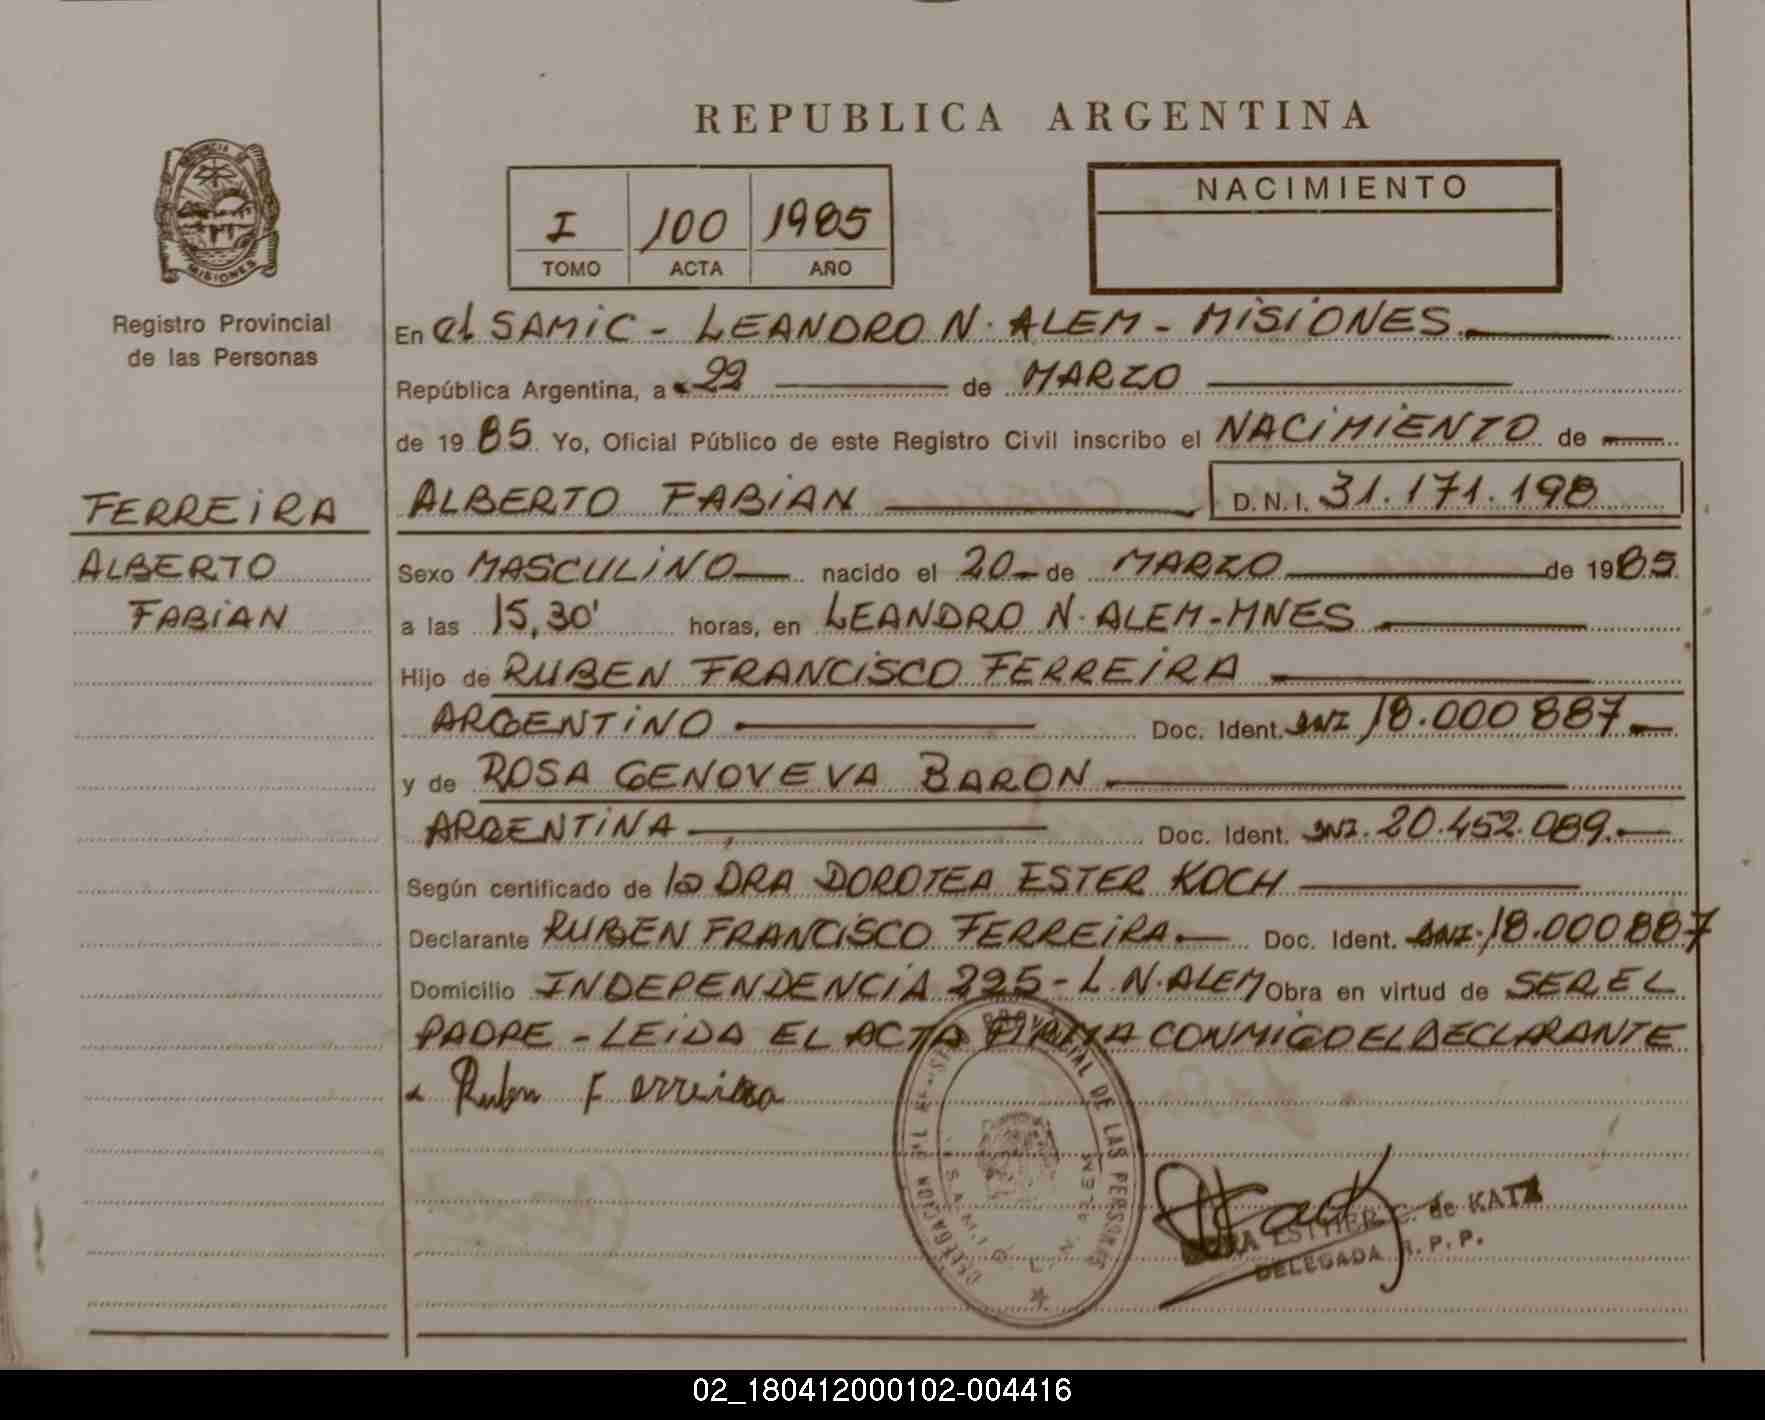 REPUBLICA ARGENTINA
PROVINCIA DE
MISIONES
Registro Provincial
de las Personas
I 100 1985
TOMO ACTA AÑO
NACIMIENTO
En el SAMIC - LEANDRO N. ALEM - MISIONES
República Argentina, a 22 de MARZO
de 19 85 Yo, Oficial Público de este Registro Civil inscribo el NACIMIENTO de
FERREIRA
ALBERTO
FABIAN
ALBERTO FABIAN D.N.I. 31.171.198
Sexo MASCULINO nacido el 20 de MARZO de 1985
a las 15,30' horas, en LEANDRO N. ALEM-MNES
Hijo de RUBEN FRANCISCO FERREIRA
ARGENTINO Doc. Ident. DNI 18.000 887
y de ROSA GENOVEVA BARON
ARGENTINA Doc. Ident. DNI. 20.452.089.
Según certificado de la DRA DOROTEA ESTER KOCH
Declarante RUBEN FRANCISCO FERREIRA Doc. Ident. DNI. 18.000 887
Domicilio INDEPENDENCIA 225 - L.N.ALEM Obra en virtud de SER EL
PADRE - LEIDA EL ACTA FIRMA CONMIGO EL DECLARANTE
Ruben Ferreira
PROVINCIAL DE LAS PERSONAS
DELEGACION
S.A.M.I.C. L. N. ALEM
ESTHER C. de KATZ
DELEGADA R.P.P.
02_180412000102-004416